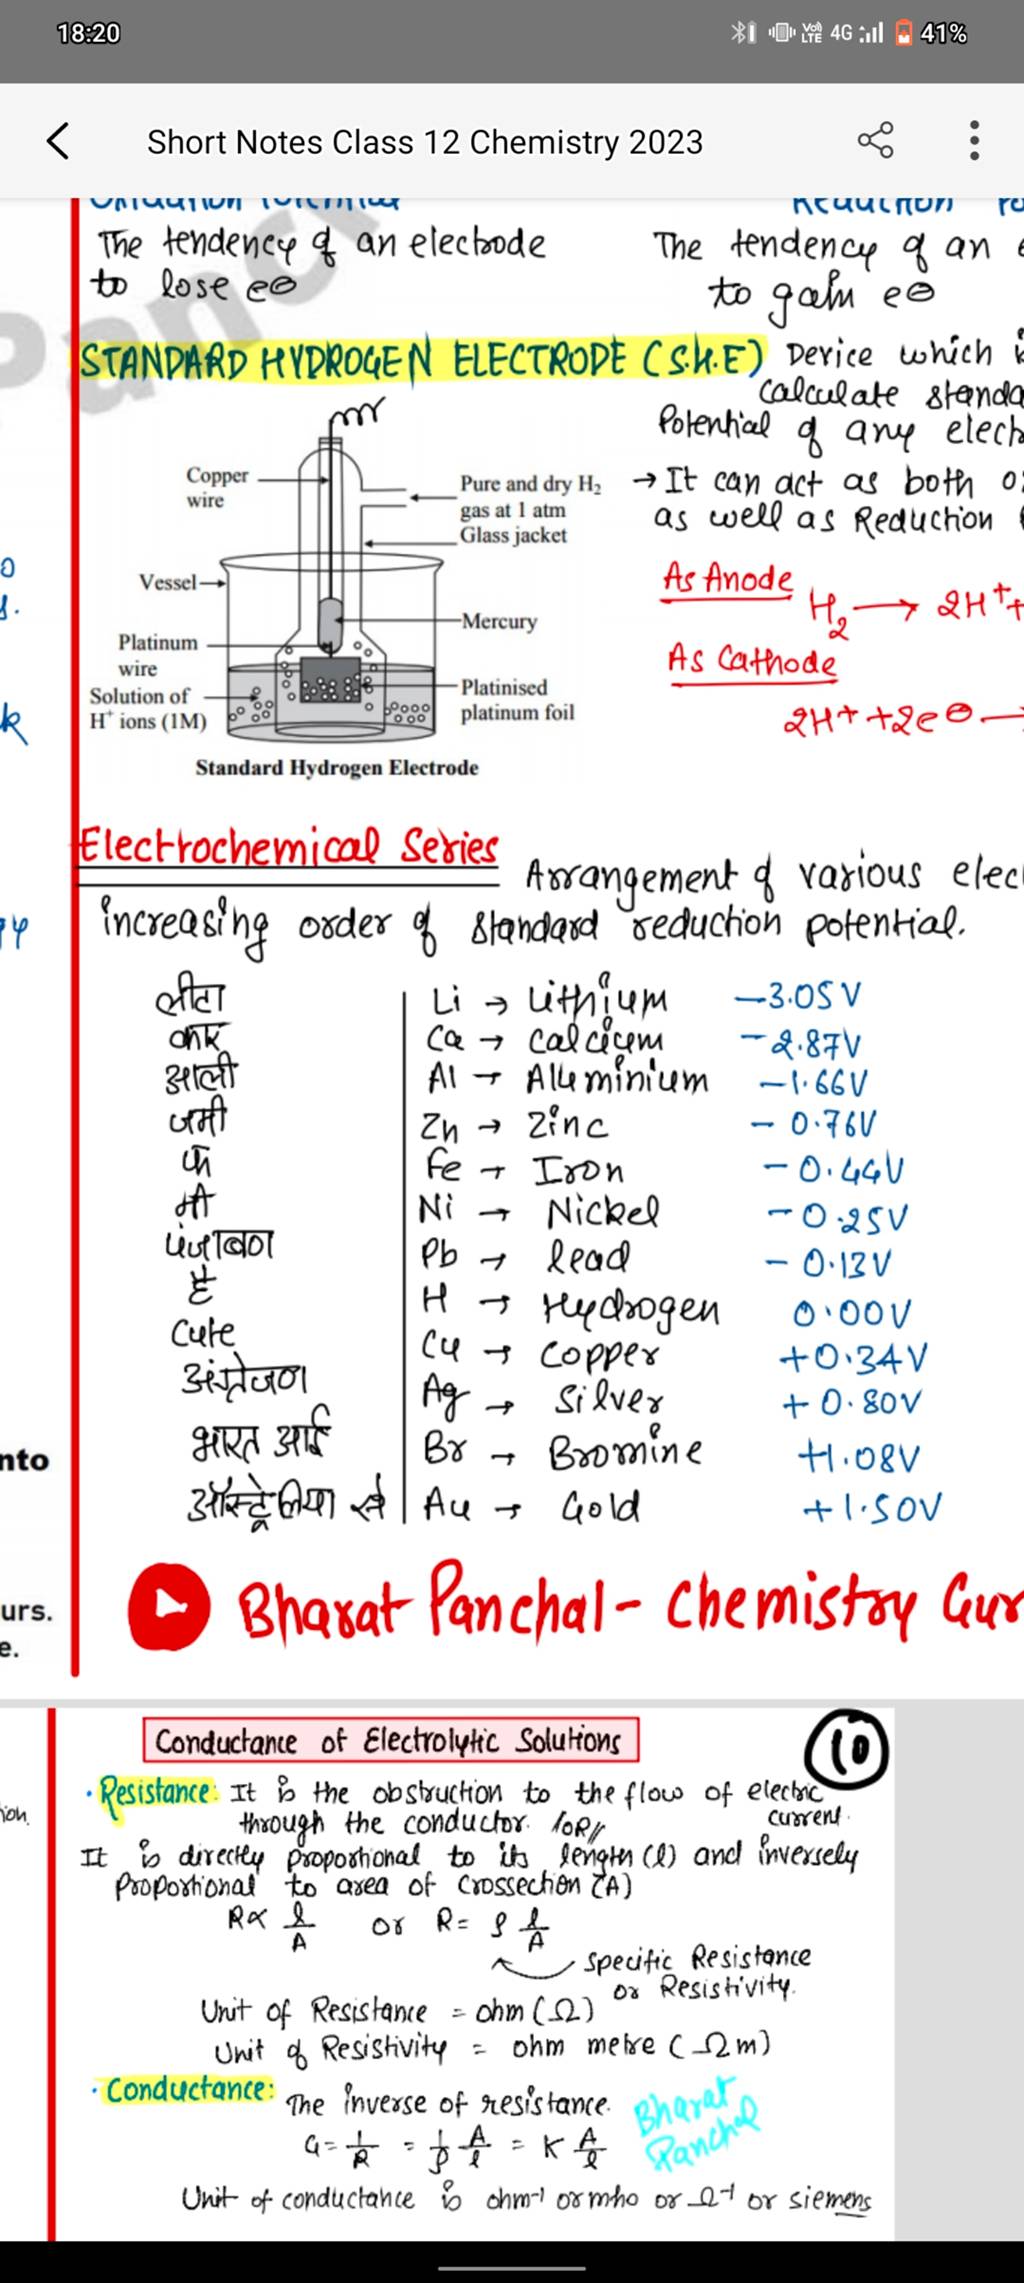 18:20
4G
41%
Short Notes Class 12 Chemistry 2023
The tendency of an electrode
to lose e⊖
The tendency of an
to gain e⊖
STANDARD HYDROGEN ELECTRODE (S.H.E)
Device which
calculate
Potential of any
→ It can act as both
as well as Reduction
Copper
wire
Pure and dry H₂
gas at 1 atm
Glass jacket
Vessel
Mercury
Platinum
wire
Platinised
platinum foil
Solution of
H⁺ ions (1M)
Standard Hydrogen Electrode
As Anode
H₂ → 2H⁺ +
As Cathode
2H⁺ + 2e⊖ →
Electrochemical Series
Arrangement of various
increasing order of standard reduction potential.
Li → Lithium -3.05V
Ca → Calcium -2.87V
आली Al → Alluminium -1.66V
Zn → Zinc -0.76V
Fe → Iron -0.44V
Ni → Nickel -0.25V
Pb → lead -0.13V
है H → Hydrogen 0.00V
Cute Cu → Copper +0.34V
Ag → Silver +0.80V
भारत आई Br → Bromine +1.08V
ऑस्ट्रेलिया से Au → Gold +1.50V
Bharat Panchal - Chemistry
Conductance of Electrolytic Solutions
10
• Resistance: It is the obstruction to the flow of electric
current.
through the conductor. (OR)
It is directly proportional to its length (l) and inversely
Proportional to area of Crossection (A)
R ∝ l/A or R = ρ l/A
specific Resistance
or Resistivity.
Unit of Resistance = ohm (Ω)
Unit of Resistivity = ohm metre (Ωm)
• Conductance: The inverse of resistance.
Bharat
Panchal
G = 1/R = 1/ρ A/l = K A/l
Unit of conductance is ohm⁻¹ or mho or Ω⁻¹ or siemens